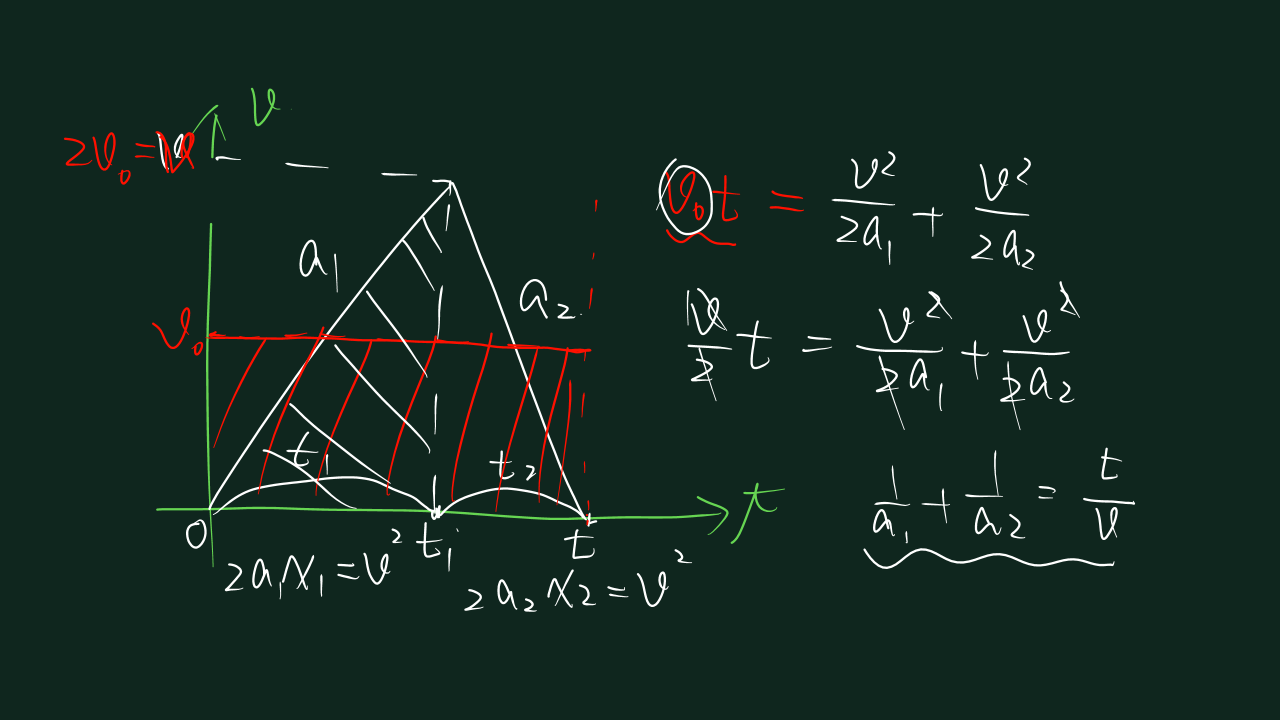 v
2v₀=v
a₁
a₂
v₀
t₁
t₂
0
t₁
t
t
2a₁x₁=v²
2a₂x₂=v²
v₀t = v²/2a₁ + v²/2a₂
v/2 t = v²/2a₁ + v²/2a₂
1/a₁ + 1/a₂ = t/v